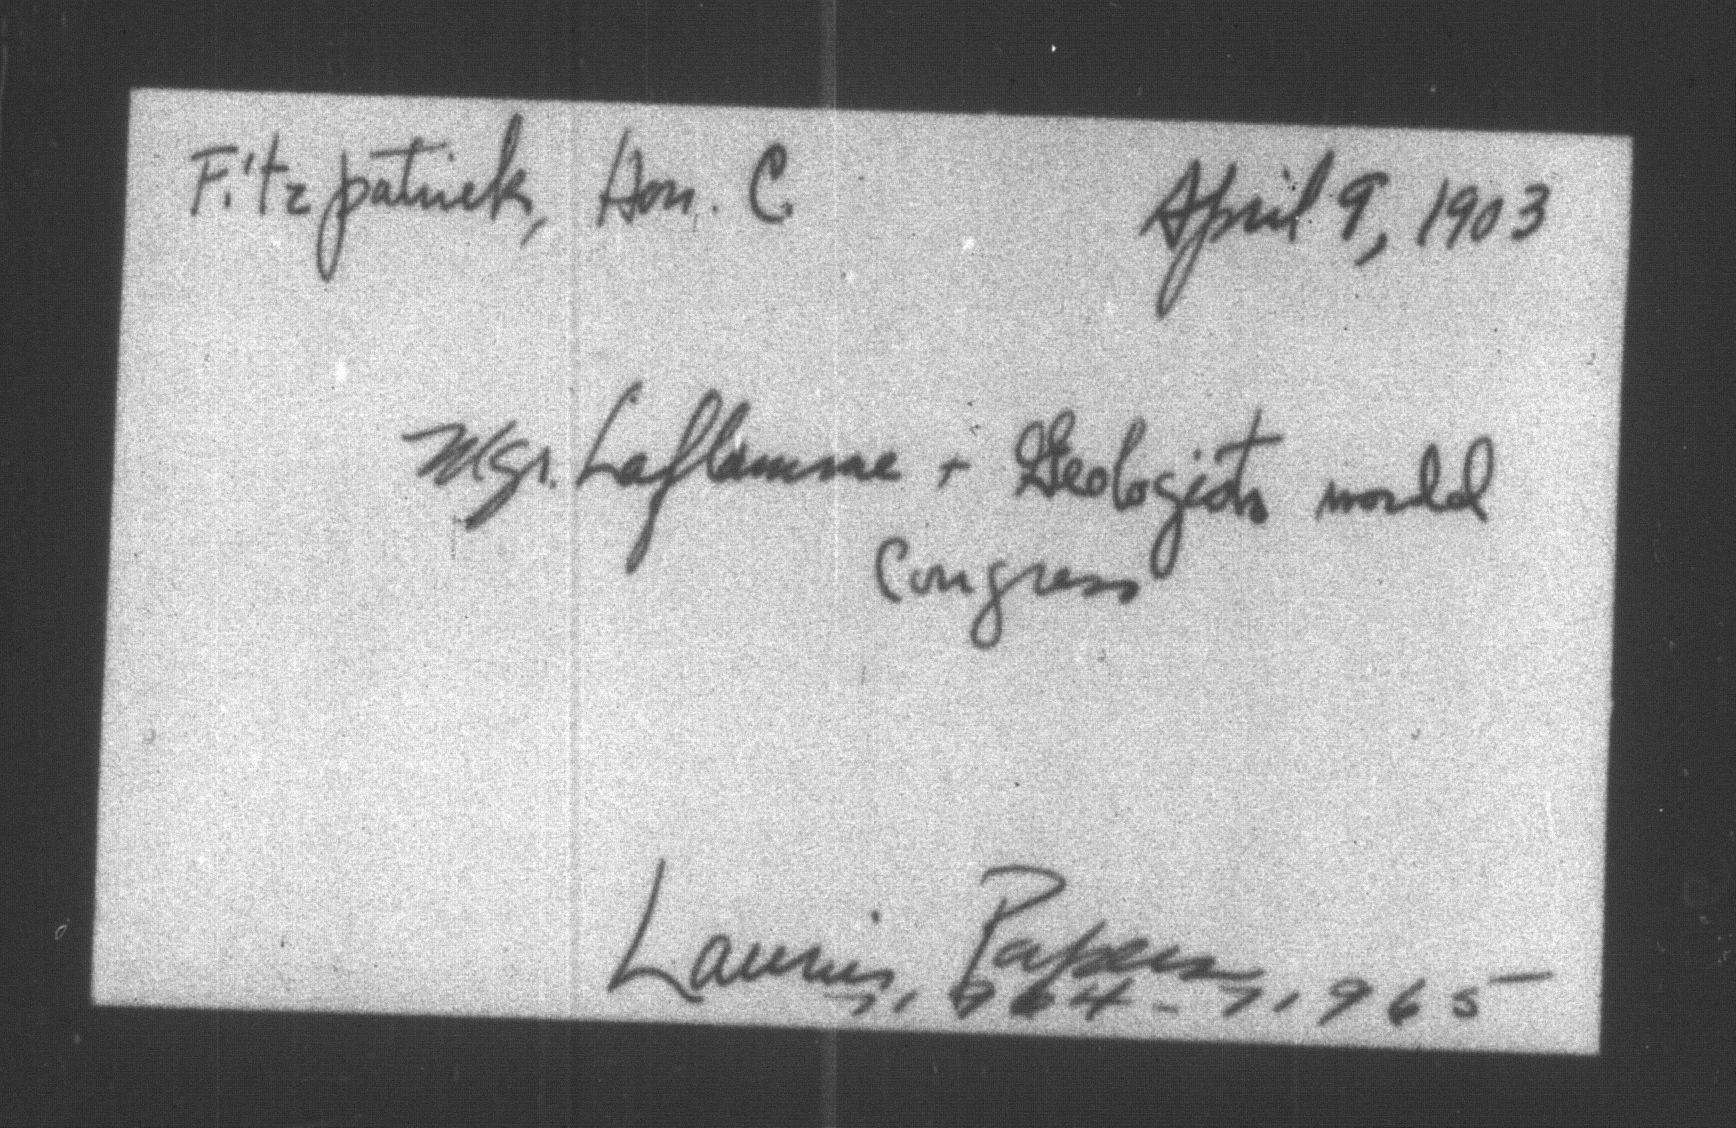 Fitzpatrick, Hon. C. April 9, 1903
Mgr. Laflamme + Geologists world
Congress
Laurier Papers
71964-71965